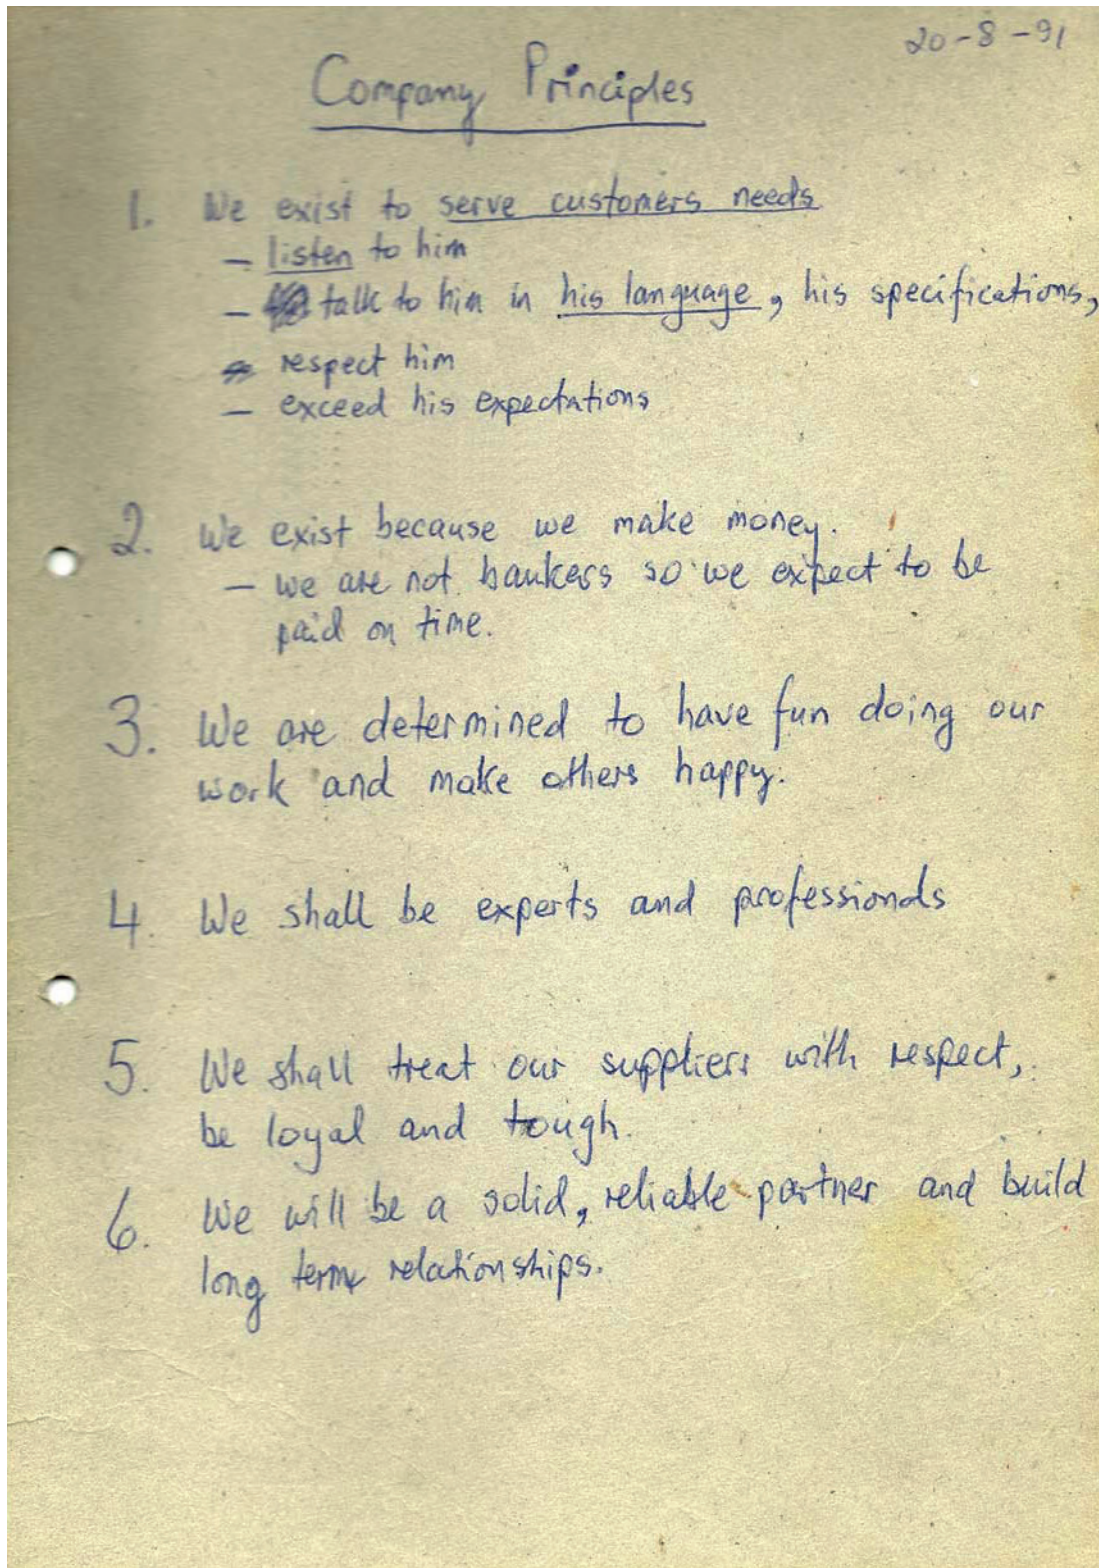 20-8-91
Company Principles
1. We exist to serve customers needs
- listen to him
- talk to him in his language, his specifications,
- respect him
- exceed his expectations
2. We exist because we make money.
- we are not bankers so we expect to be
paid on time.
3. We are determined to have fun doing our
work and make others happy.
4. We shall be experts and professionals
5. We shall treat our suppliers with respect,
be loyal and tough.
6. We will be a solid, reliable partner and build
long term relationships.